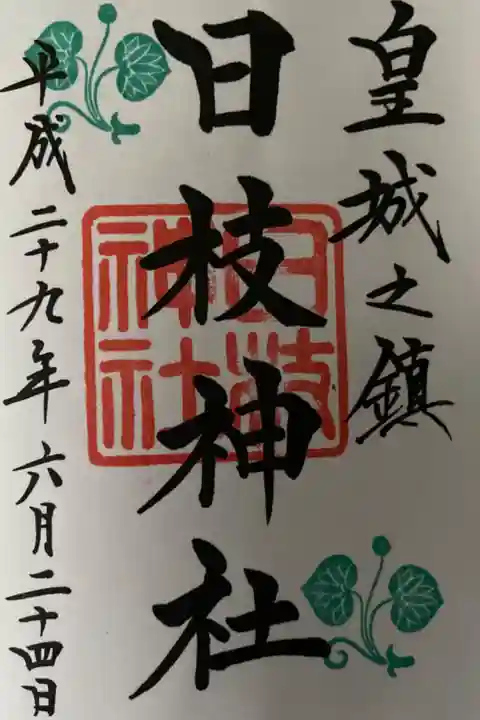 皇城之鎮
日枝神社
日枝
神社
平成二十九年六月二十四日